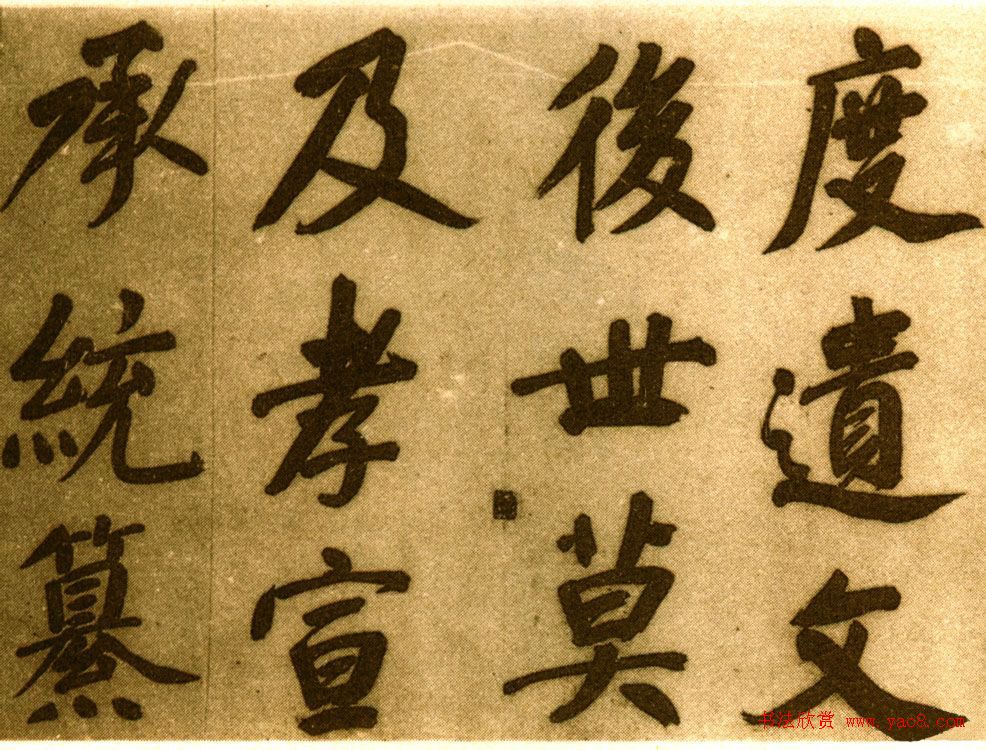 度遺文
後世莫
及孝宣
承統纂
书法欣赏 www.yac8.com